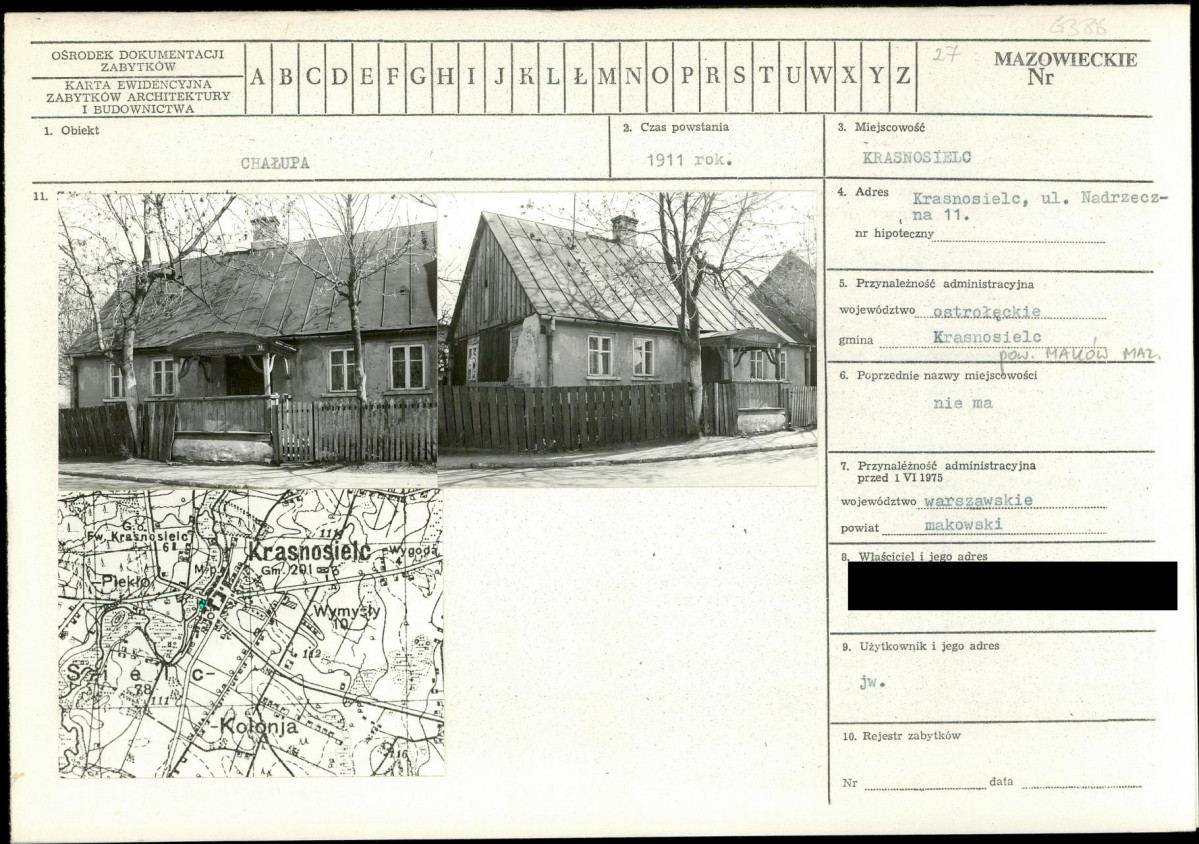 6386
OŚRODEK DOKUMENTACJI
ZABYTKÓW
KARTA EWIDENCYJNA
ZABYTKÓW ARCHITEKTURY
I BUDOWNICTWA
A B C D E F G H I J K L Ł M N O P R S T U W X Y Z
27
MAZOWIECKIE
Nr
1. Obiekt
CHAŁUPA
2. Czas powstania
1911 rok.
3. Miejscowość
KRASNOSIELC
4. Adres Krasnosielc, ul. Nadrzecz-
na 11.
nr hipoteczny
5. Przynależność administracyjna
województwo ostrołęckie
gmina Krasnosielc
pow. MAKÓW MAZ.
6. Poprzednie nazwy miejscowości
nie ma
7. Przynależność administracyjna
przed 1 VI 1975
województwo warszawskie
powiat makowski
8. Właściciel i jego adres
9. Użytkownik i jego adres
jw.
10. Rejestr zabytków
Nr data
11.
G.o.
Fw. Krasnosielc
6
111
Krasnosielc
Gm. 201
Wygoda
4
M.p.
-Piekło
Wymysły
10
112
S i e l c-
78
111
-Kolonja
116